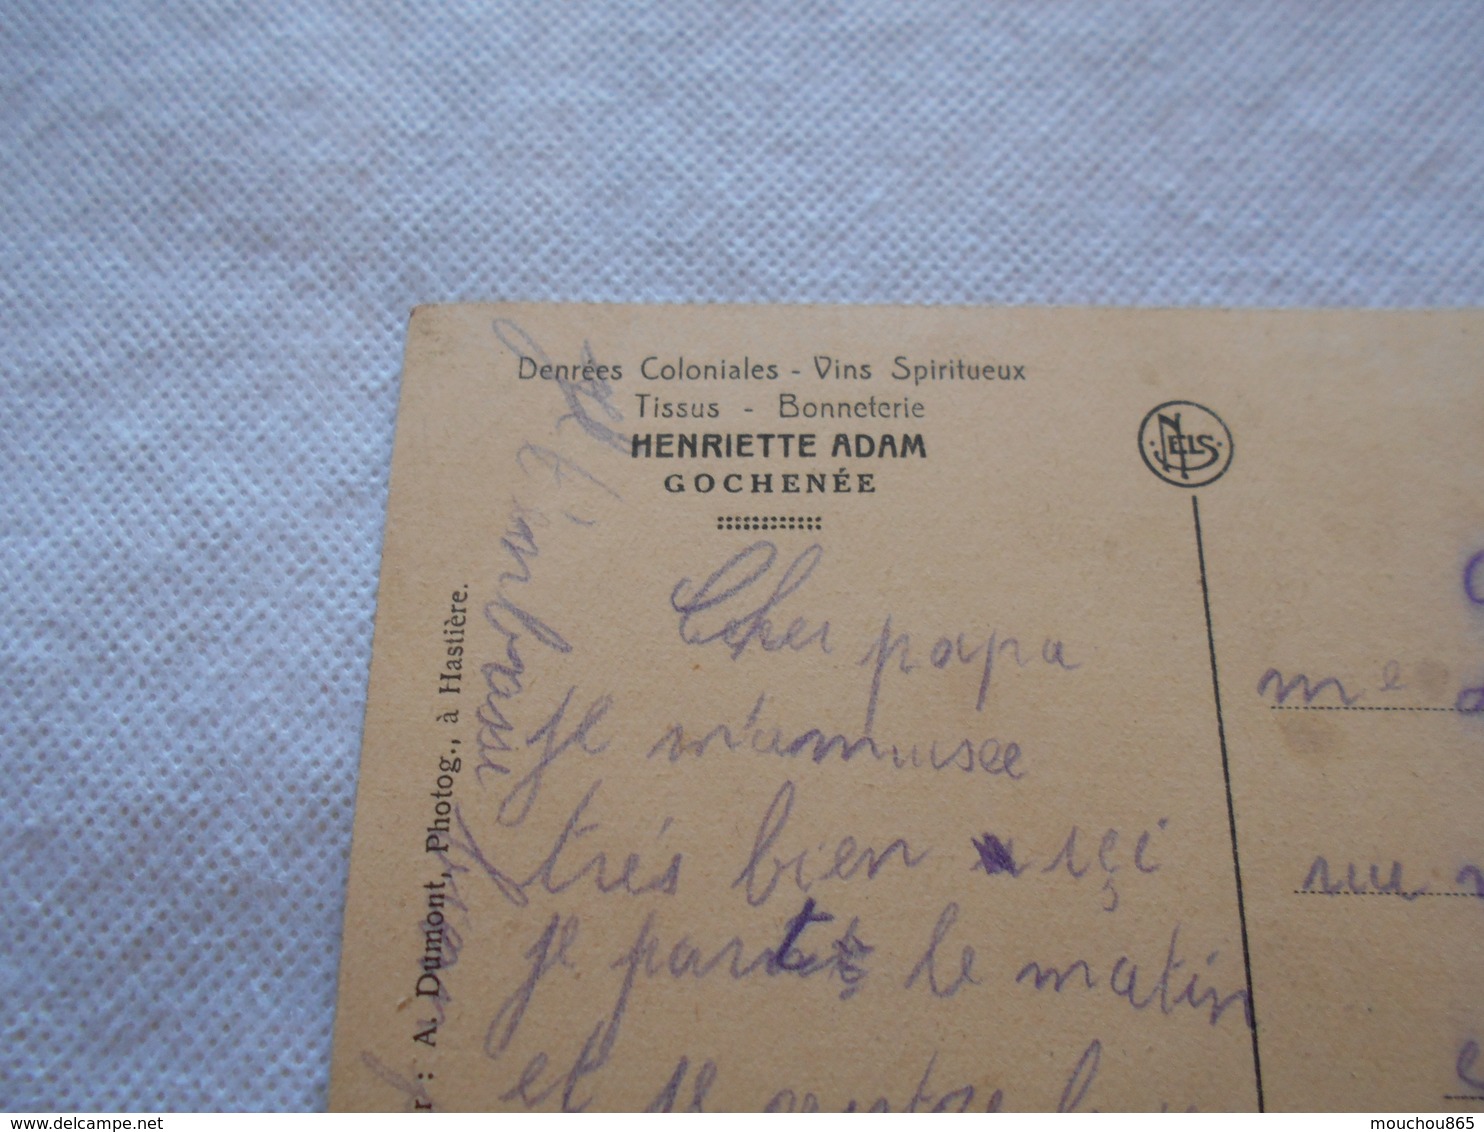 Denrées Coloniales - Vins Spiritueux
Tissus - Bonneterie
HENRIETTE ADAM
GOCHENÉE
NELS
r : A. Dumont, Photog., à Hastière.
Cher papa
je m'amusee
très bien içi
je part le matin
et je rentre
Je t'embrasse
me
www.delcampe.net
mouchou865